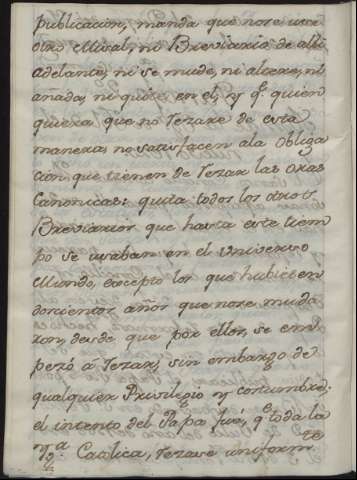 publicacion, manda que no se use
otro Misal, no Breviario de alli
adelante, ni se mude, ni altere, ni
añada, ni quite en el, y qe. quien
quiera que no Rezare de esta
manera no satisfacen ala Obliga
cion que tienen de Rezar las oras
Canonicas: quita todos los otros
Breviarios que hasta este tiem
po se usaban en el Universo
Mundo, excepto los que hubiesen
dorcientos años que nose muda
ron, desde que por ellos, se em
pezó á Rezar, sin embargo de
qualquier Privilegio y costumbre;
el intento del Papa fué, qe toda la
Yga. Catolica, rezase uniformte